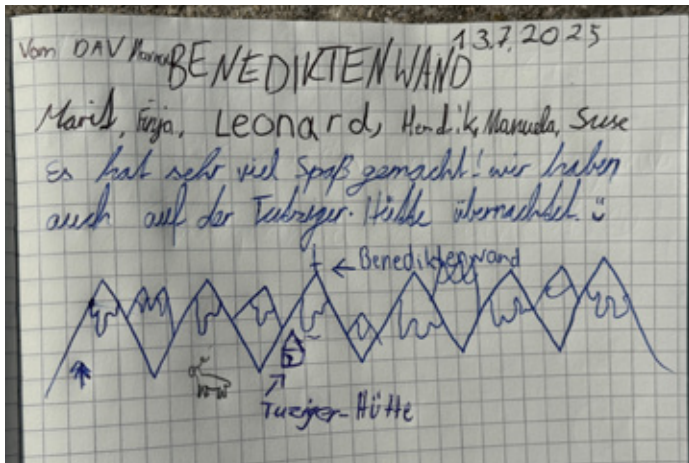 13.7.2025
Vom DAV
BENEDIKTENWAND
Marit, Finja, Leonard, Hendrik, Manuela, Suse
Es hat sehr viel Spaß gemacht! wir haben
auch auf der Tutzinger-Hütte übernachtet.
← Benediktenwand
Tuziger-Hütte